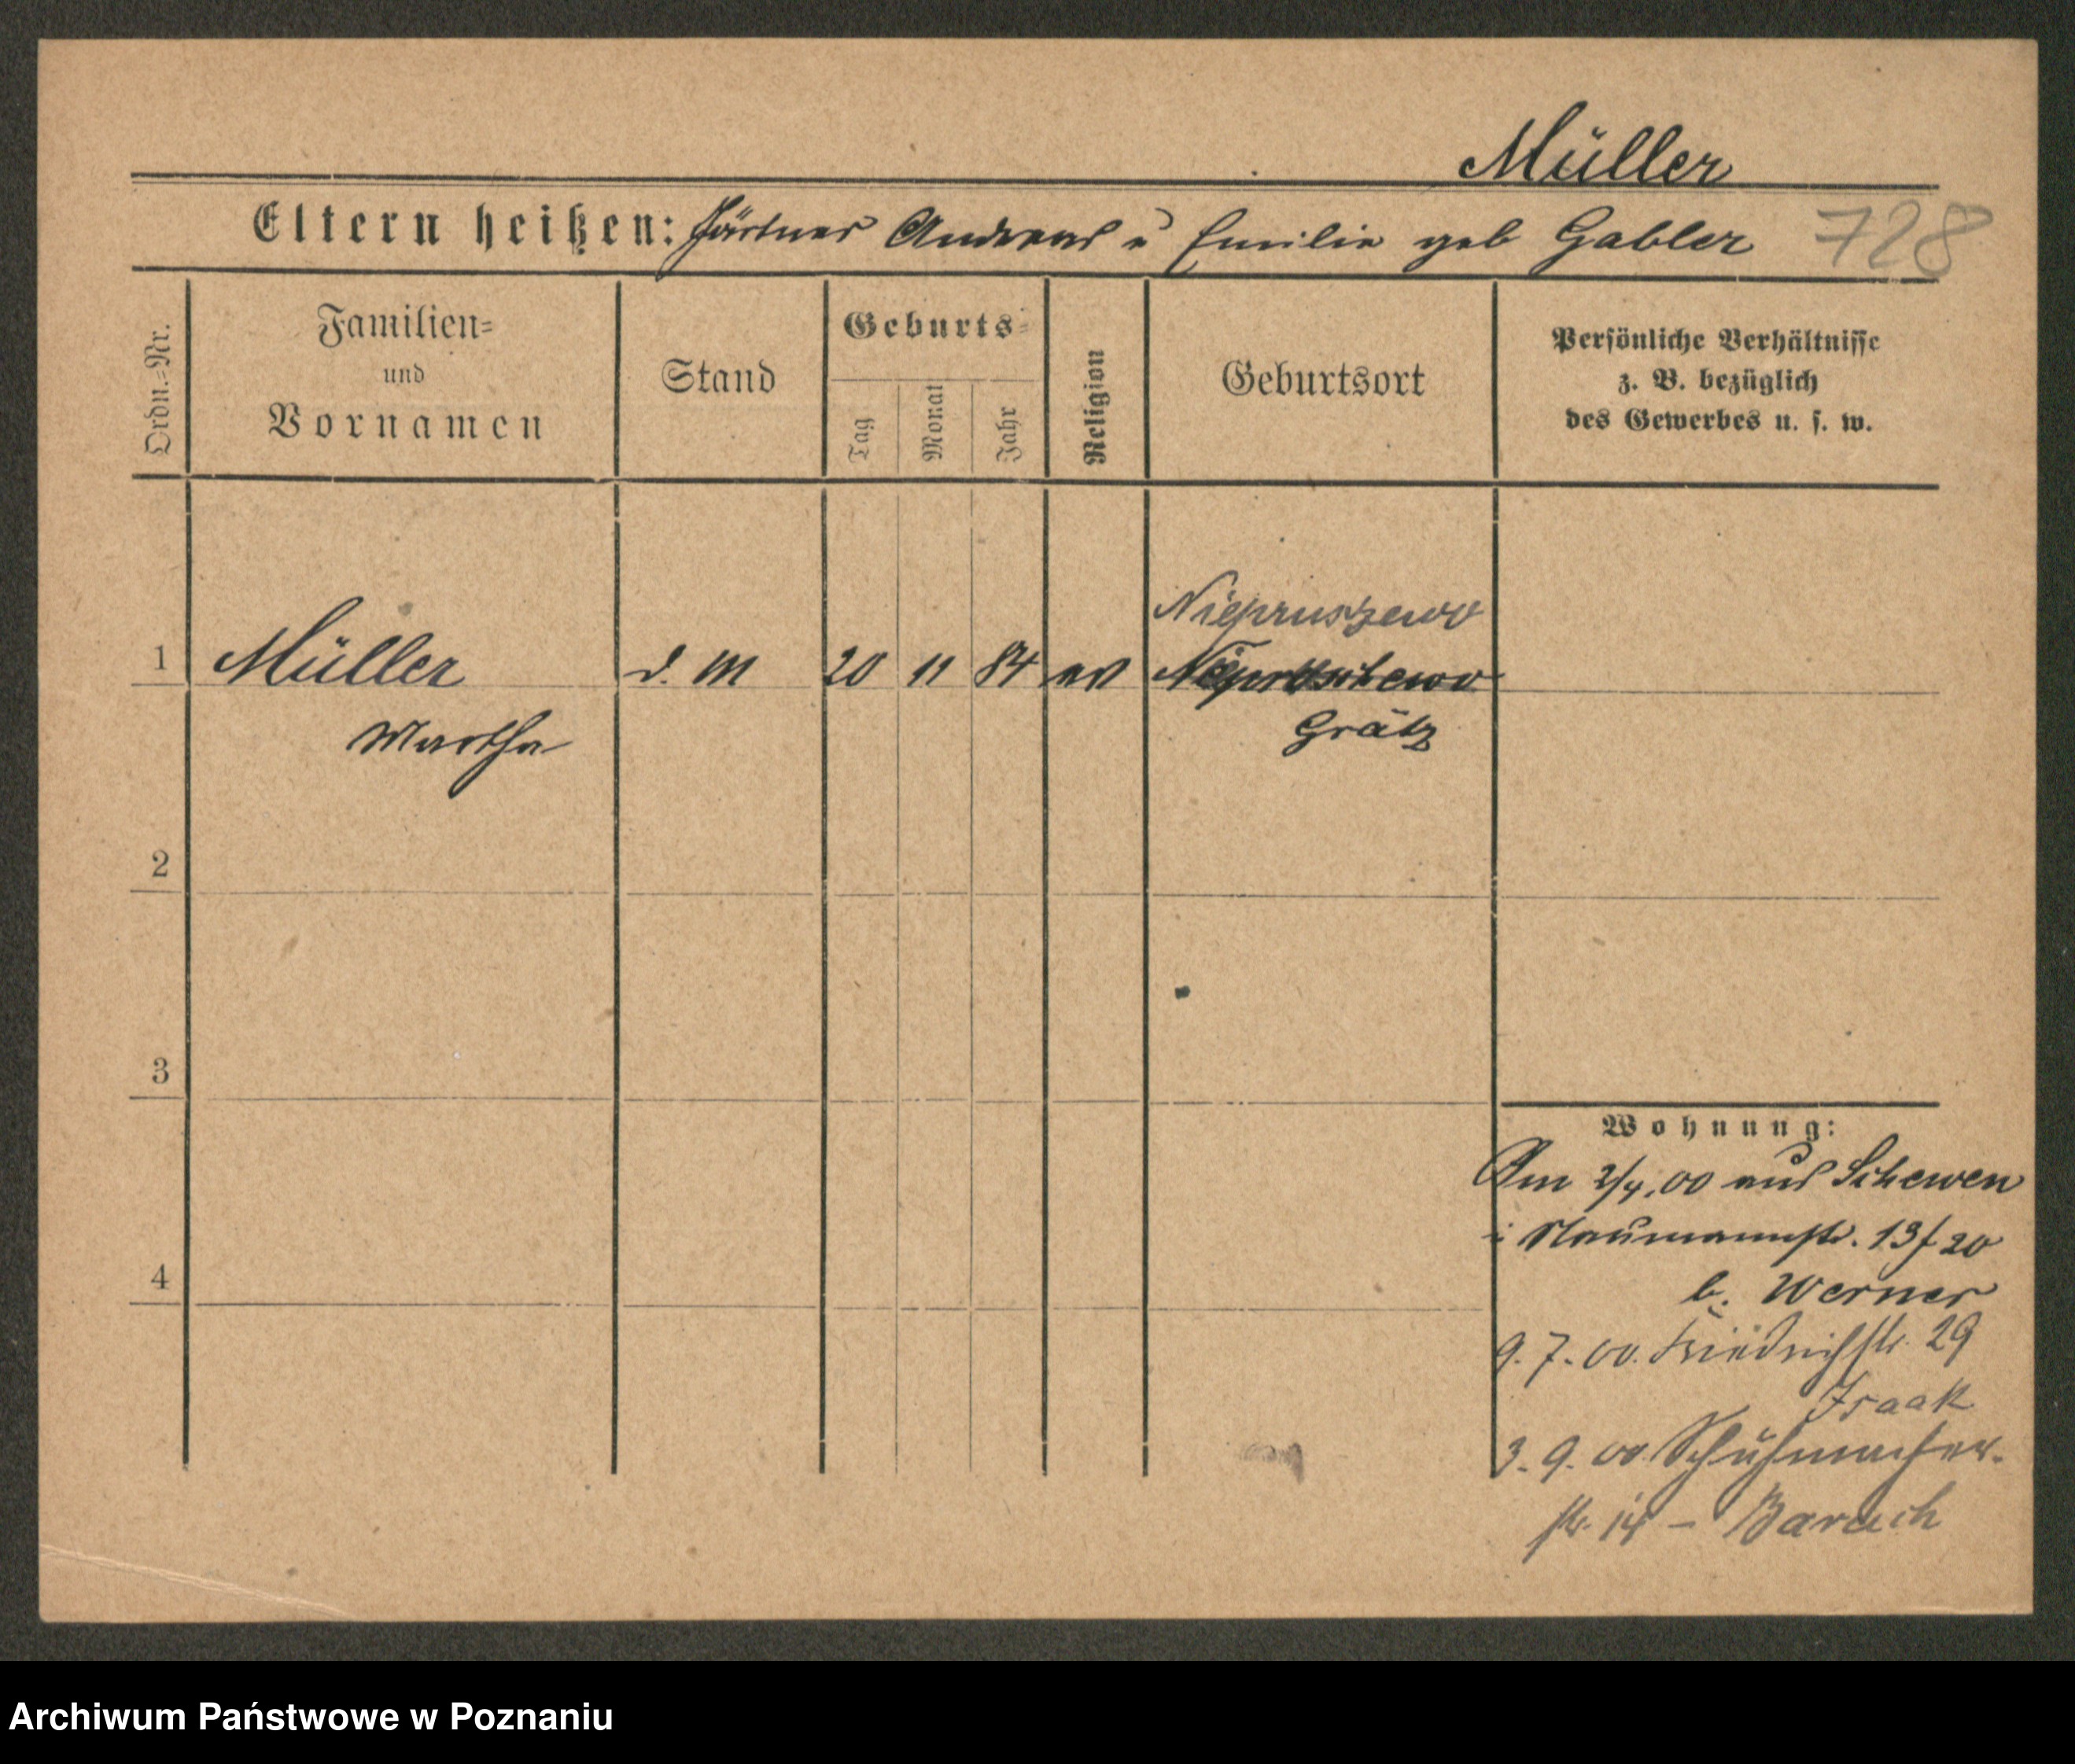 Müller
Eltern heißen: Gärtner Andreas u Emilie geb Gabler 728
Ordn.-Nr.
Familien-
und
Vornamen
Stand
Geburts-
Tag
Monat
Jahr
Religion
Geburtsort
Persönliche Verhältnisse
z. B. bezüglich
des Gewerbes u. s. w.
Niepruszewo
1 Müller d. M 20 11 84 ev
Martha Grätz
2
3
4
Wohnung:
Am 2/4.00 aus Schewen
i Naumannstr. 13/20
b. Werner
9.7.00. Friedrichstr. 29
Isaak
3.9.00 Schuhmacher-
str. 14 - Baruch
Archiwum Państwowe w Poznaniu